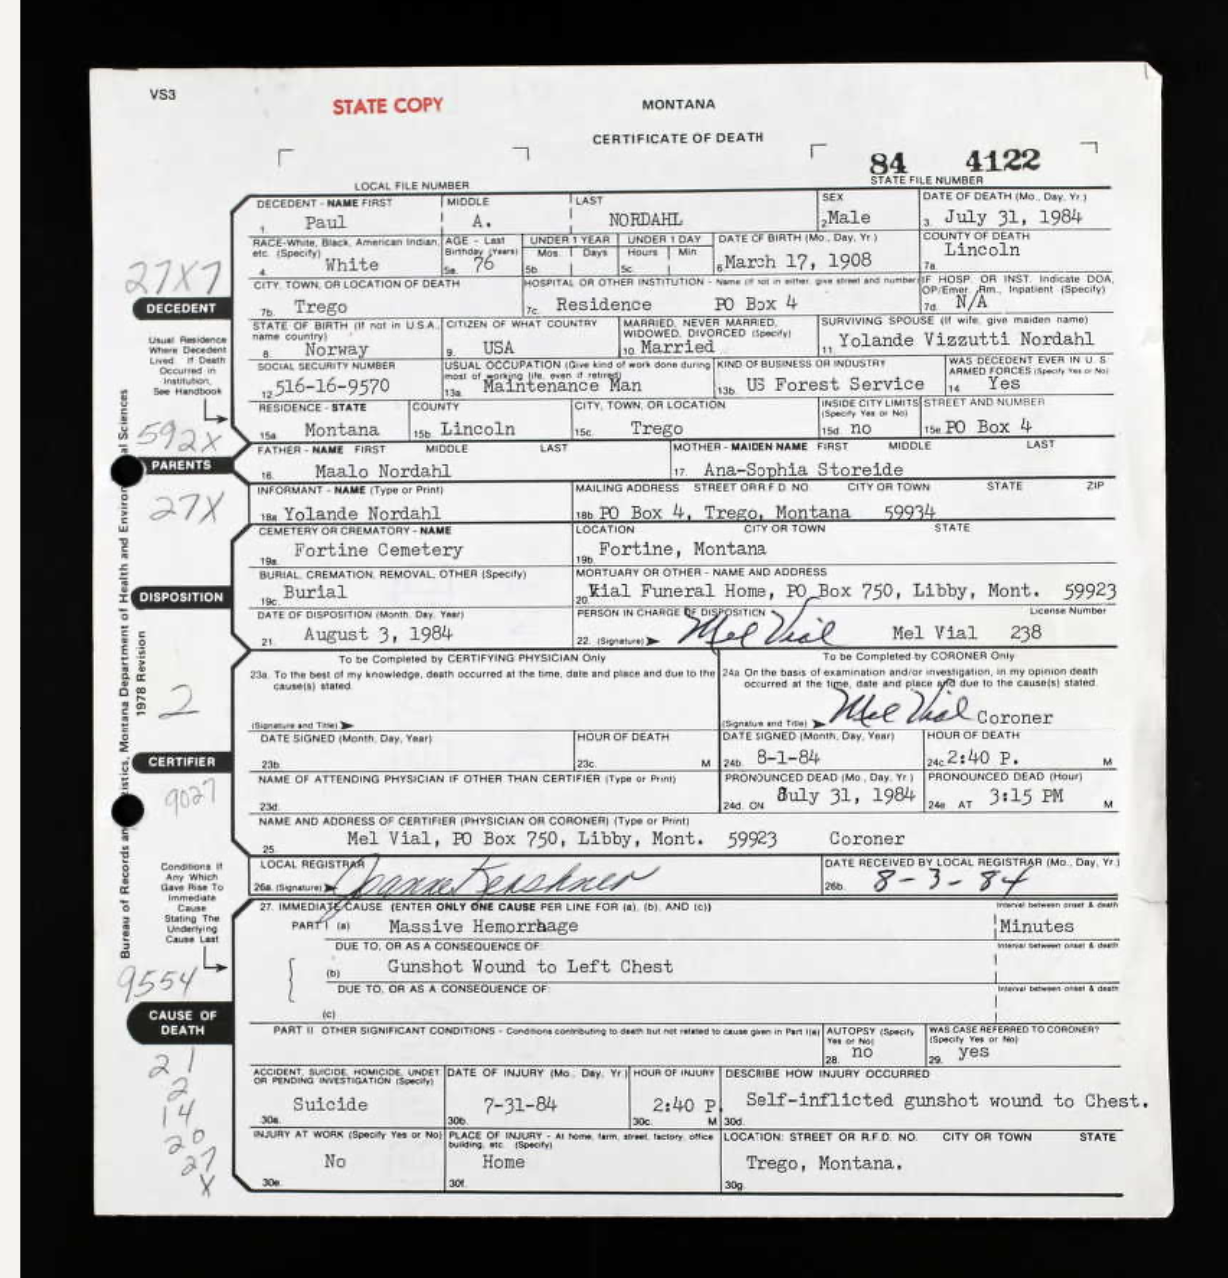 VS3
STATE COPY
MONTANA
CERTIFICATE OF DEATH
84 4122
LOCAL FILE NUMBER
STATE FILE NUMBER
DECEDENT - NAME FIRST MIDDLE LAST SEX DATE OF DEATH (Mo., Day, Yr.)
1. Paul A. NORDAHL 2. Male 3. July 31, 1984
RACE-White, Black, American Indian, etc. (Specify) AGE - Last Birthday (Years) UNDER 1 YEAR UNDER 1 DAY DATE OF BIRTH (Mo., Day, Yr.) COUNTY OF DEATH
Mos. Days Hours Min
4. White 5a. 76 5b. 5c. 6. March 17, 1908 7a. Lincoln
27X7
DECEDENT
CITY, TOWN, OR LOCATION OF DEATH HOSPITAL OR OTHER INSTITUTION - Name (If not in either, give street and number) IF HOSP. OR INST. Indicate DOA, OP/Emer. Rm., Inpatient (Specify)
7b. Trego 7c. Residence PO Box 4 7d. N/A
STATE OF BIRTH (If not in U.S.A., name country) CITIZEN OF WHAT COUNTRY MARRIED, NEVER MARRIED, WIDOWED, DIVORCED (Specify) SURVIVING SPOUSE (If wife, give maiden name)
8. Norway 9. USA 10. Married 11. Yolande Vizzutti Nordahl
Usual Residence
Where Decedent
Lived. If Death
Occurred in
Institution,
See Handbook
SOCIAL SECURITY NUMBER USUAL OCCUPATION (Give kind of work done during most of working life, even if retired) KIND OF BUSINESS OR INDUSTRY WAS DECEDENT EVER IN U.S. ARMED FORCES (Specify Yes or No)
12. 516-16-9570 13a. Maintenance Man 13b. US Forest Service 14. Yes
RESIDENCE - STATE COUNTY CITY, TOWN, OR LOCATION INSIDE CITY LIMITS (Specify Yes or No) STREET AND NUMBER
15a. Montana 15b. Lincoln 15c. Trego 15d. no 15e. PO Box 4
592X
PARENTS
FATHER - NAME FIRST MIDDLE LAST MOTHER - MAIDEN NAME FIRST MIDDLE LAST
16. Maalo Nordahl 17. Ana-Sophia Storeide
27X
INFORMANT - NAME (Type or Print) MAILING ADDRESS STREET OR R.F.D. NO. CITY OR TOWN STATE ZIP
18a. Yolande Nordahl 18b. PO Box 4, Trego, Montana 59934
CEMETERY OR CREMATORY - NAME LOCATION CITY OR TOWN STATE
19a. Fortine Cemetery 19b. Fortine, Montana
DISPOSITION
BURIAL, CREMATION, REMOVAL, OTHER (Specify) MORTUARY OR OTHER - NAME AND ADDRESS
19c. Burial 20. Vial Funeral Home, PO Box 750, Libby, Mont. 59923
DATE OF DISPOSITION (Month, Day, Year) PERSON IN CHARGE OF DISPOSITION License Number
21. August 3, 1984 22. (Signature) Mel Vial Mel Vial 238
To be Completed by CERTIFYING PHYSICIAN Only To be Completed by CORONER Only
23a. To the best of my knowledge, death occurred at the time, date and place and due to the cause(s) stated.
24a. On the basis of examination and/or investigation, in my opinion death occurred at the time, date and place and due to the cause(s) stated.
2
(Signature and Title) (Signature and Title) Mel Vial Coroner
DATE SIGNED (Month, Day, Year) HOUR OF DEATH DATE SIGNED (Month, Day, Year) HOUR OF DEATH
23b. 23c. M 24b. 8-1-84 24c. 2:40 P. M
CERTIFIER
9027
NAME OF ATTENDING PHYSICIAN IF OTHER THAN CERTIFIER (Type or Print) PRONOUNCED DEAD (Mo., Day, Yr.) PRONOUNCED DEAD (Hour)
23d. 24d. ON July 31, 1984 24e. AT 3:15 PM M
NAME AND ADDRESS OF CERTIFIER (PHYSICIAN OR CORONER) (Type or Print)
25. Mel Vial, PO Box 750, Libby, Mont. 59923 Coroner
LOCAL REGISTRAR DATE RECEIVED BY LOCAL REGISTRAR (Mo., Day, Yr.)
26a. (Signature) Joanne Kerskner 26b. 8-3-84
Conditions if
Any Which
Gave Rise To
Immediate
Cause
Stating The
Underlying
Cause Last
27. IMMEDIATE CAUSE (ENTER ONLY ONE CAUSE PER LINE FOR (a), (b), AND (c)) Interval between onset & death
PART I (a) Massive Hemorrhage Minutes
DUE TO, OR AS A CONSEQUENCE OF: Interval between onset & death
(b) Gunshot Wound to Left Chest
DUE TO, OR AS A CONSEQUENCE OF: Interval between onset & death
(c)
9554
CAUSE OF
DEATH
PART II OTHER SIGNIFICANT CONDITIONS - Conditions contributing to death but not related to cause given in Part I(a) AUTOPSY (Specify Yes or No) WAS CASE REFERRED TO CORONER? (Specify Yes or No)
28. no 29. yes
ACCIDENT, SUICIDE, HOMICIDE, UNDET. OR PENDING INVESTIGATION (Specify) DATE OF INJURY (Mo., Day, Yr.) HOUR OF INJURY DESCRIBE HOW INJURY OCCURRED
30a. Suicide 30b. 7-31-84 30c. 2:40 P. M 30d. Self-inflicted gunshot wound to Chest.
INJURY AT WORK (Specify Yes or No) PLACE OF INJURY - At home, farm, street, factory, office building, etc. (Specify) LOCATION: STREET OR R.F.D. NO. CITY OR TOWN STATE
30e. No 30f. Home 30g. Trego, Montana.
21
2
14
20
27
X
1978 Revision